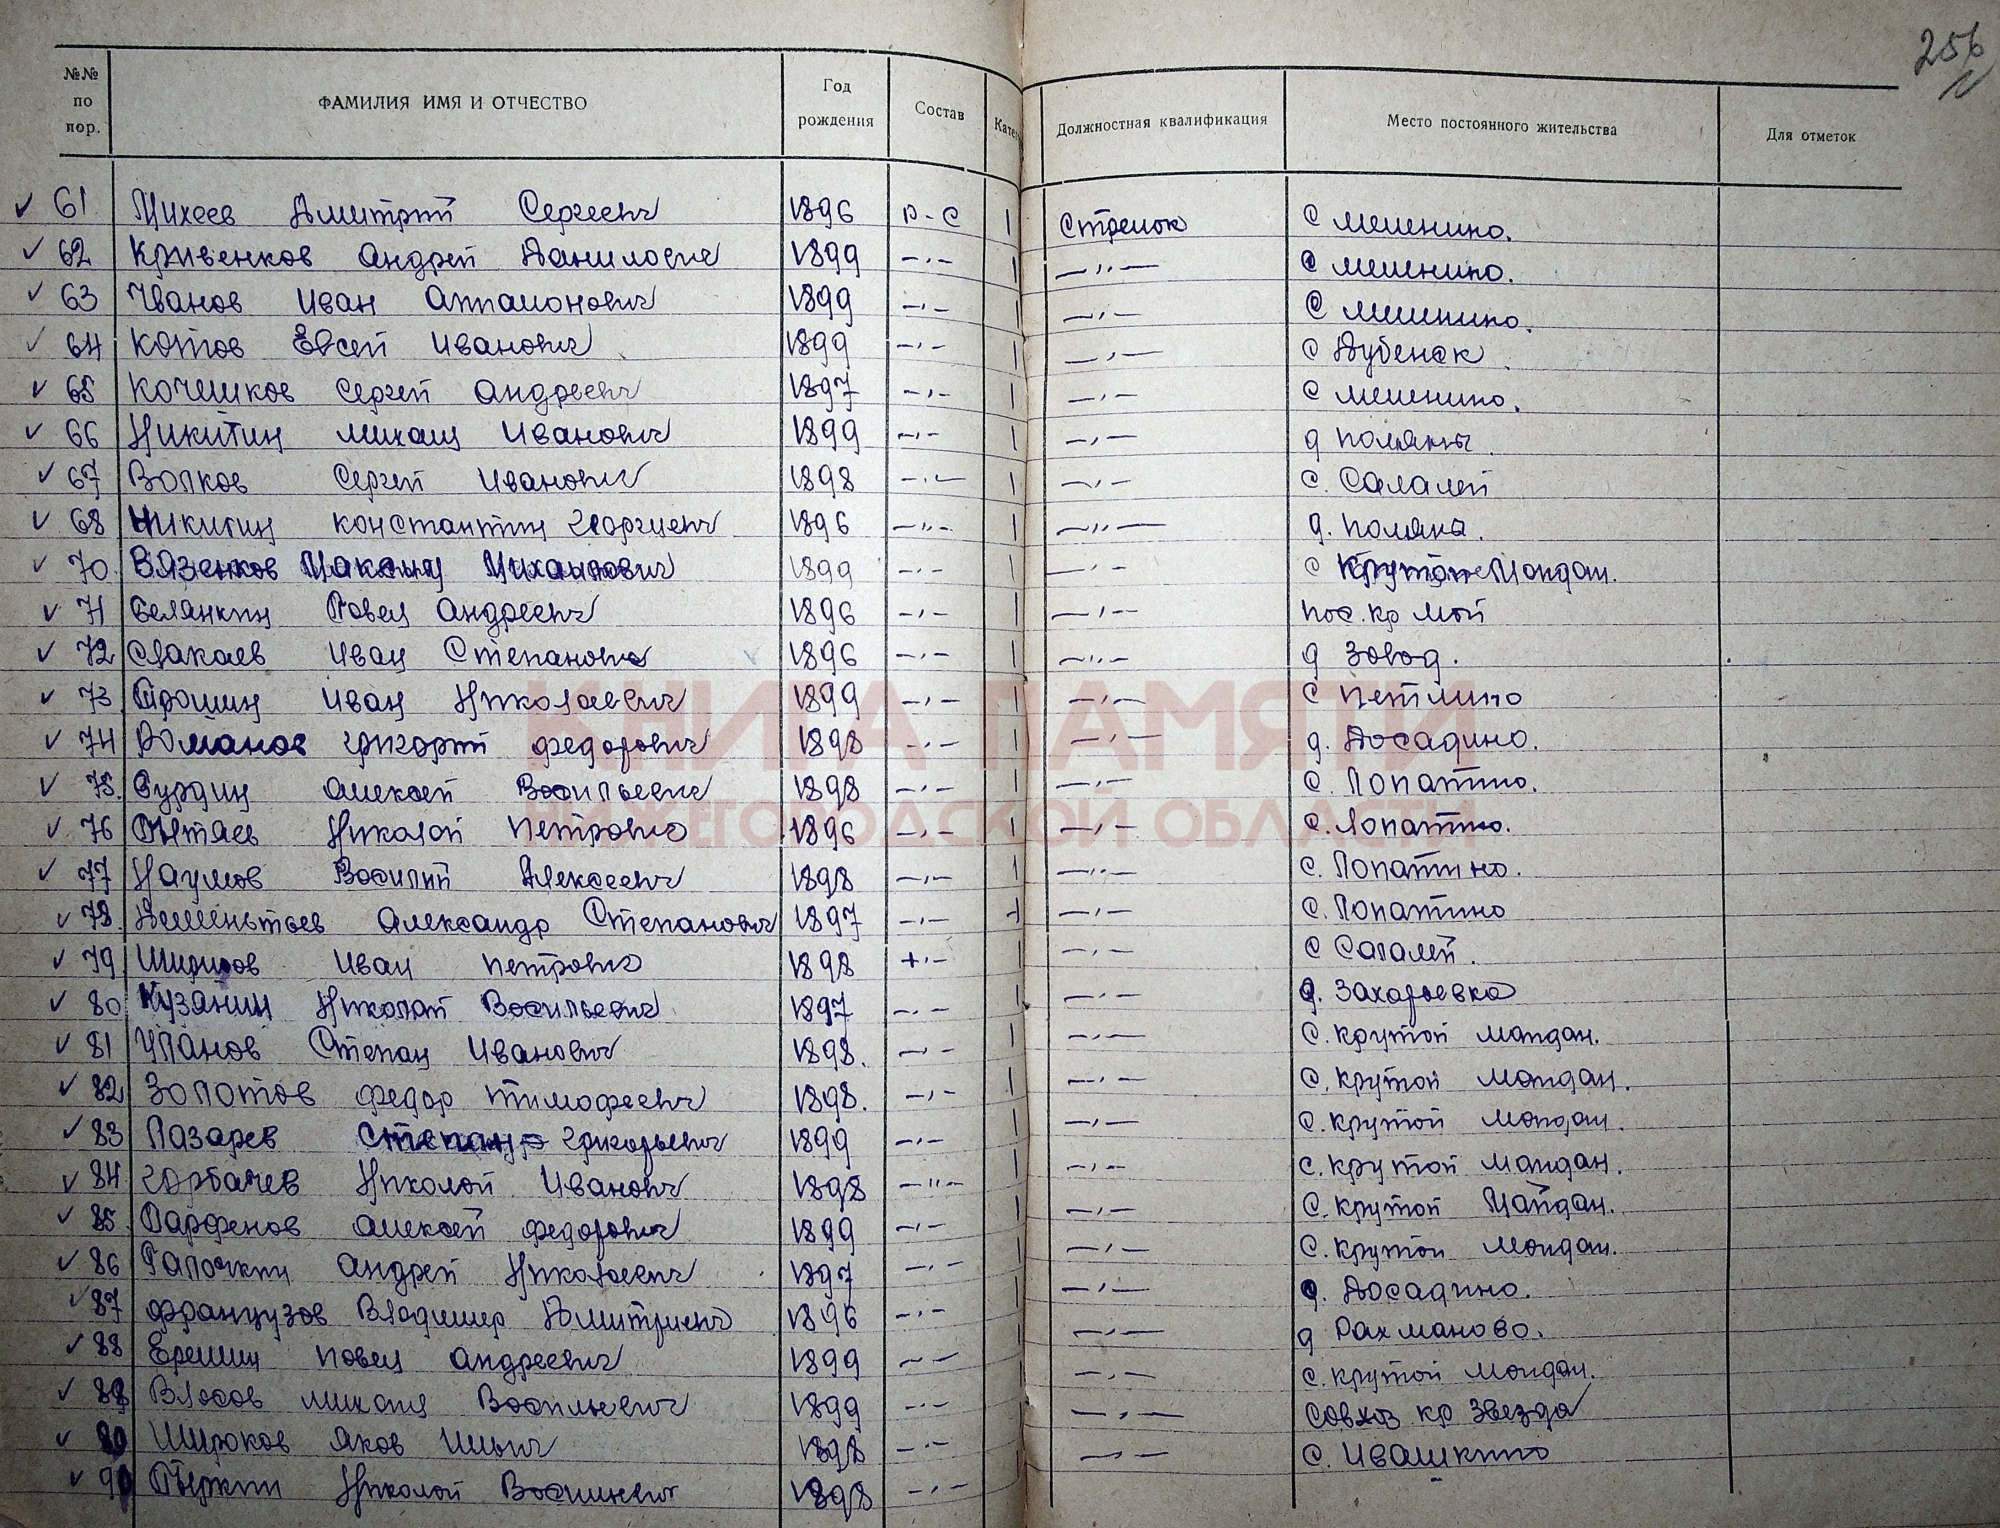 256
№№ по пор. ФАМИЛИЯ ИМЯ И ОТЧЕСТВО Год рождения Состав Катег Должностная квалификация Место постоянного жительства Для отметок
61 Михеев Дмитрий Сергеевич 1896 р-с 1 Стрелок с Мешенино.
62 Кривенков Андрей Данилович 1899 -"- 1 -"- с Мешенино.
63 Иванов Иван 1899 -"- 1 -"- с Мешенино.
64 Котов Евсей Иванович 1899 -"- 1 -"- с Дубенск
65 Кочешков Сергей Андреевич 1897 -"- 1 -"- с Мешенино.
66 Никитин Михаил Иванович 1899 -"- 1 -"- д Поляны
67 Волков Сергей Иванович 1898 -"- 1 -"- с. Салалей
68 Никитин Константин Георгиевич 1896 -"- 1 -"- д. Поляна.
70 Вязенков Максим Михайлович 1899 -"- 1 -"- с Крутой Майдан.
71 Белянкин Павел Андреевич 1896 -"- 1 -"- пос. кр май
72 Иван Степанович 1896 -"- 1 -"- д Завод.
73 Трошин Иван Николаевич 1899 -"- 1 -"- с Петлино
74 Романов Григорий Федорович 1898 -"- 1 -"- д. Досадино.
75. Сурдин Алексей Васильевич 1898 -"- 1 -"- с. Лопатино.
76 Николай Петрович 1896 -"- 1 -"- с. Лопатино.
77 Наумов Василий Алексеевич 1898 -"- 1 -"- с. Лопатино.
78. Александр Степанович 1897 -"- 1 -"- с. Лопатино
79 Иван Петрович 1898 -"- 1 -"- с Салалей.
80 Кузянин Николай Васильевич 1897 -"- 1 -"- д. Захарьевка
81 Уланов Степан Иванович 1898. -"- 1 -"- с. Крутой Майдан.
82 Золотов Федор Тимофеевич 1898. -"- 1 -"- с. Крутой Майдан.
83 Лазарев Степан Григорьевич 1899 -"- 1 -"- с. Крутой Майдан.
84 Горбачев Николай Иванович 1898 -"- 1 -"- с. Крутой Майдан.
85. Парфенов Алексей Федорович 1899 -"- 1 -"- с. Крутой Майдан.
86 Галочкин Андрей Николаевич 1897 -"- 1 -"- с. Крутой Майдан.
87 Французов Владимир Дмитриевич 1896 -"- 1 -"- д. Досадино.
88 Ерешин Павел Андреевич 1899 -"- 1 -"- д Рахманово.
89 Власов Михаил Васильевич 1899 -"- 1 -"- с. Крутой Майдан.
Широков Яков Ильич 1898 -"- 1 -"- совхоз кр Звезда
Николай Васильевич 1898 -"- 1 -"- с. Ивашкино
КНИГА ПАМЯТИ
НИЖЕГОРОДСКОЙ ОБЛАСТИ